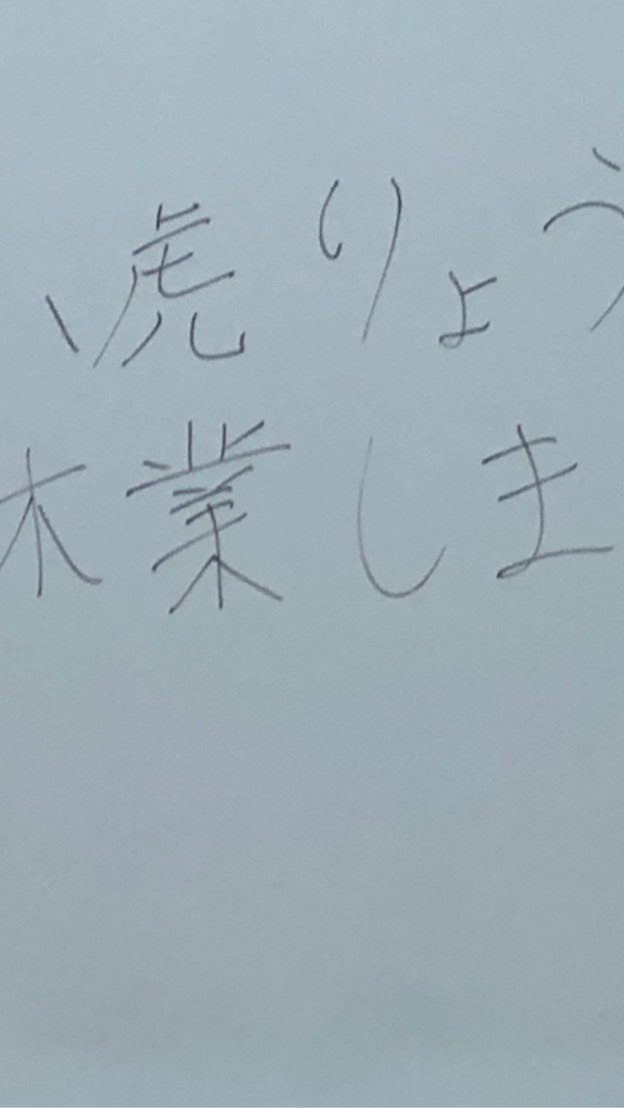 虎りょう
木業しま